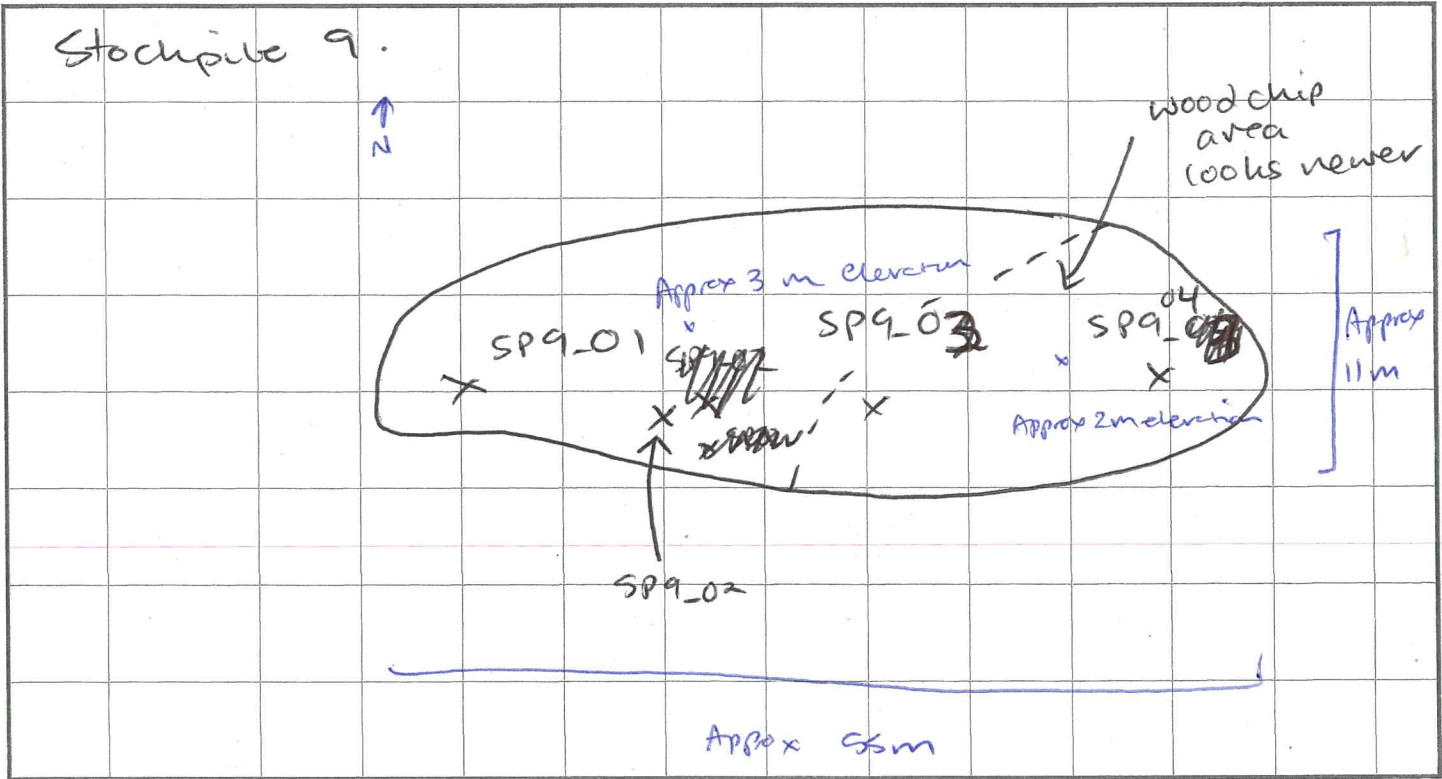 Stockpile 9.
N
wood chip
area
looks newer
Approx 3 m elevation
SP9_01
SP9_03
04
SP9_
Approx
11m
Approx 2m elevation
SP9_02
Approx 55m